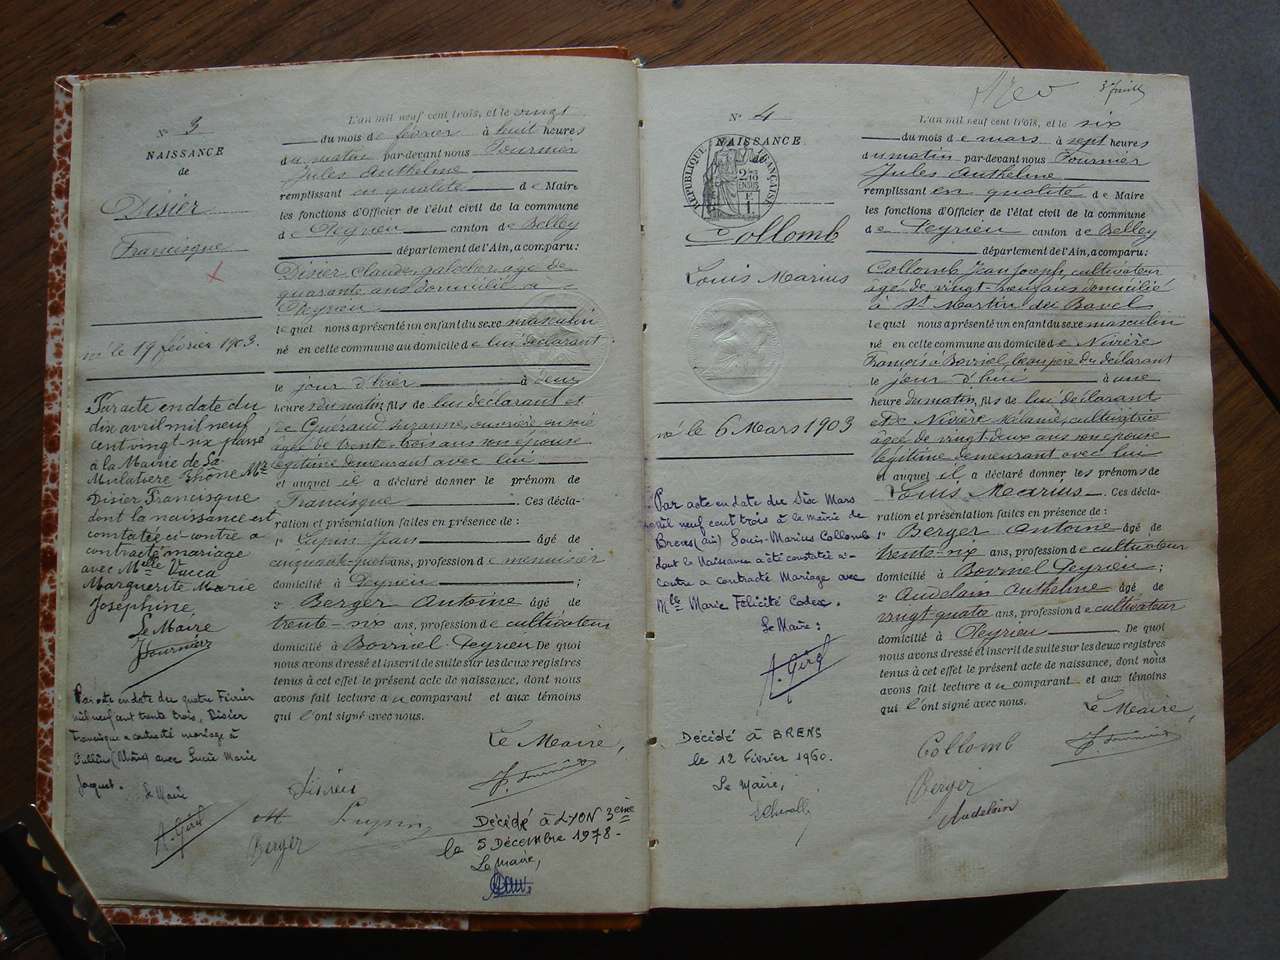 N° 3
NAISSANCE
de
Disier
Francisque
né le 19 février 1903.
Par acte en date du
dix avril mil neuf
cent vingt six passé
à la Mairie de La
Mulatière Rhône Mr
Disier Francisque
dont la naissance est
constatée ci-contre a
contracté mariage
avec Melle Vucca
Marguerite Marie
Joséphine.
Le Maire
JFournier
Par acte en date du quatre Février
mil neuf cent trente trois, Disier
Francisque a contracté mariage à
Oullins (Rhône) avec Lucie Marie
Jaquet.
Le Maire
A. Girod
L'an mil neuf cent trois, et le vingt
du mois de février à huit heures
du matin par-devant nous Fournier
Jules Anthelme
remplissant en qualité de Maire
les fonctions d'Officier de l'état civil de la commune
de Peyrieu canton de Belley
département de l'Ain, a comparu:
Disier Claude, galocher, âgé de
quarante ans domicilié à
Peyrieu
lequel nous a présenté un enfant du sexe masculin
né en cette commune au domicile de lui déclarant
le jour d'hier à deux
heures du matin, fils de lui déclarant et
de Guéraud Suzanne, ouvrière en soie
âgée de trente-trois ans son épouse
légitime demeurant avec lui
et auquel il a déclaré donner le prénom de
Francisque Ces décla-
ration et présentation faites en présence de:
1° Jean âgé de
ans, profession de menuisier
domicilié à Peyrieu ;
2° Berger Antoine âgé de
trente-six ans, profession de cultivateur
domicilié à Bovinel Peyrieu De quoi
nous avons dressé et inscrit de suite sur les deux registres
tenus à cet effet le présent acte de naissance, dont nous
avons fait lecture au comparant et aux témoins
qui l'ont signé avec nous.
Le Maire,
J. Fournier
Disier
Berger
Décédé à LYON 3ème
le 5 Décembre 1978-
Le maire,
3 Juillet
N° 4
NAISSANCE
de
RÉPUBLIQUE FRANÇAISE
Collomb
Louis Marius
né le 6 Mars 1903
Par acte en date du Six Mars
mil neuf cent trois à la mairie de
Brens (Ain) Louis-Marius Collomb
dont la Naissance a été constatée ci-
contre a contracté Mariage avec
Mlle Marie Félicité Codex.
Le Maire:
A. Girod
Décédé à BRENS
le 12 Février 1960.
Le Maire,
L'an mil neuf cent trois, et le six
du mois de mars à sept heures
du matin par-devant nous Fournier
Jules Anthelme
remplissant en qualité de Maire
les fonctions d'Officier de l'état civil de la commune
de Peyrieu canton de Belley
département de l'Ain, a comparu:
Collomb Jean Joseph, cultivateur
âgé de vingt-neuf ans domicilié
à St Martin de Bavel
lequel nous a présenté un enfant du sexe masculin
né en cette commune au domicile de Nivière
François à Bovinel, beau père du déclarant
le jour d'hui à une
heure du matin, fils de lui déclarant
et de Nivière Mélanie, cultivatrice
âgée de vingt deux ans son épouse
légitime demeurant avec lui
et auquel il a déclaré donner les prénoms de
Louis Marius. Ces décla-
ration et présentation faites en présence de:
1° Berger Antoine âgé de
trente-six ans, profession de cultivateur
domicilié à Bovinel Peyrieu;
2° Audelain Anthelme âgé de
vingt quatre ans, profession de cultivateur
domicilié à Peyrieu De quoi
nous avons dressé et inscrit de suite sur les deux registres
tenus à cet effet le présent acte de naissance, dont nous
avons fait lecture au comparant et aux témoins
qui l'ont signé avec nous.
Le Maire,
J. Fournier
Collomb
Berger
Audelain